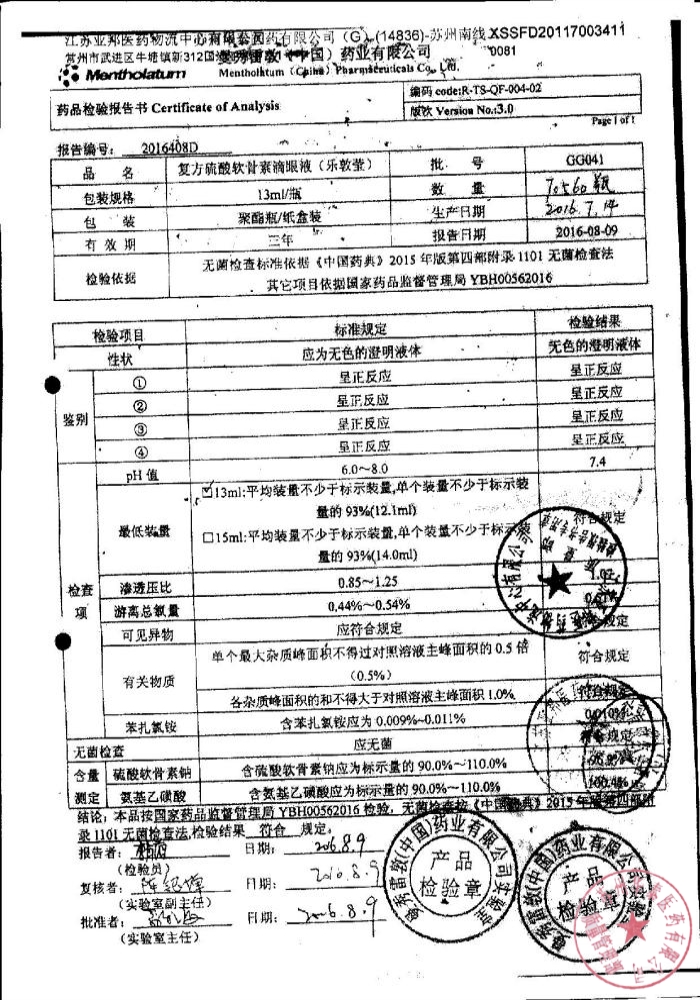 江苏亚邦医药物流中心有限公司药有限公司(G)-(14836)-苏州南线 XSSFD20117003411
常州市武进区牛塘镇新312国
0081
曼秀雷敦(中国)药业有限公司
Mentholatum Mentholatum (China) Pharmaceuticals Co., Ltd.
药品检验报告书 Certificate of Analysis
编码 code:R-TS-QF-004-02
版次 Version No.:3.0
Page 1 of 1
报告编号: 2016408D
品 名 复方硫酸软骨素滴眼液(乐敦莹) 批 号 GG041
包装规格 13ml/瓶 数 量 70560瓶
包 装 聚酯瓶/纸盒装 生产日期 2016.7.14
有 效 期 三年 报告日期 2016-08-09
检验依据 无菌检查标准依据《中国药典》2015年版第四部附录1101无菌检查法
其它项目依据国家药品监督管理局 YBH00562016
检验项目 标准规定 检验结果
性状 应为无色的澄明液体 无色的澄明液体
鉴别 ① 呈正反应 呈正反应
② 呈正反应 呈正反应
③ 呈正反应 呈正反应
④ 呈正反应 呈正反应
检查项 pH 值 6.0~8.0 7.4
最低装量 ☑13ml:平均装量不少于标示装量,单个装量不少于标示装
量的 93%(12.1ml) 符合规定
□15ml:平均装量不少于标示装量,单个装量不少于标示装
量的 93%(14.0ml)
渗透压比 0.85~1.25
游离总氨量 0.44%~0.54%
可见异物 应符合规定 符合规定
有关物质 单个最大杂质峰面积不得过对照溶液主峰面积的 0.5 倍
(0.5%) 符合规定
各杂质峰面积的和不得大于对照溶液主峰面积 1.0% 符合规定
苯扎氯铵 含苯扎氯铵应为 0.009%~0.011% 0.010%
无菌检查 应无菌 符合规定
含量测定 硫酸软骨素钠 含硫酸软骨素钠应为标示量的 90.0%~110.0%
氨基乙磺酸 含氨基乙磺酸应为标示量的 90.0%~110.0% 100.4%
结论:本品按国家药品监督管理局 YBH00562016 检验,无菌检查按《中国药典》2015年版第四部附
录 1101 无菌检查法,检验结果 符合 规定。
报告者: 日期: 2016.8.9
(检验员)
复核者: 日期: 2016.8.9
(实验室副主任)
批准者: 日期: 2016.8.9
(实验室主任)
曼秀雷敦(中国)药业有限公司实验室
产品
检验章
曼秀雷敦(中国)药业有限公司实验室
产品
检验章